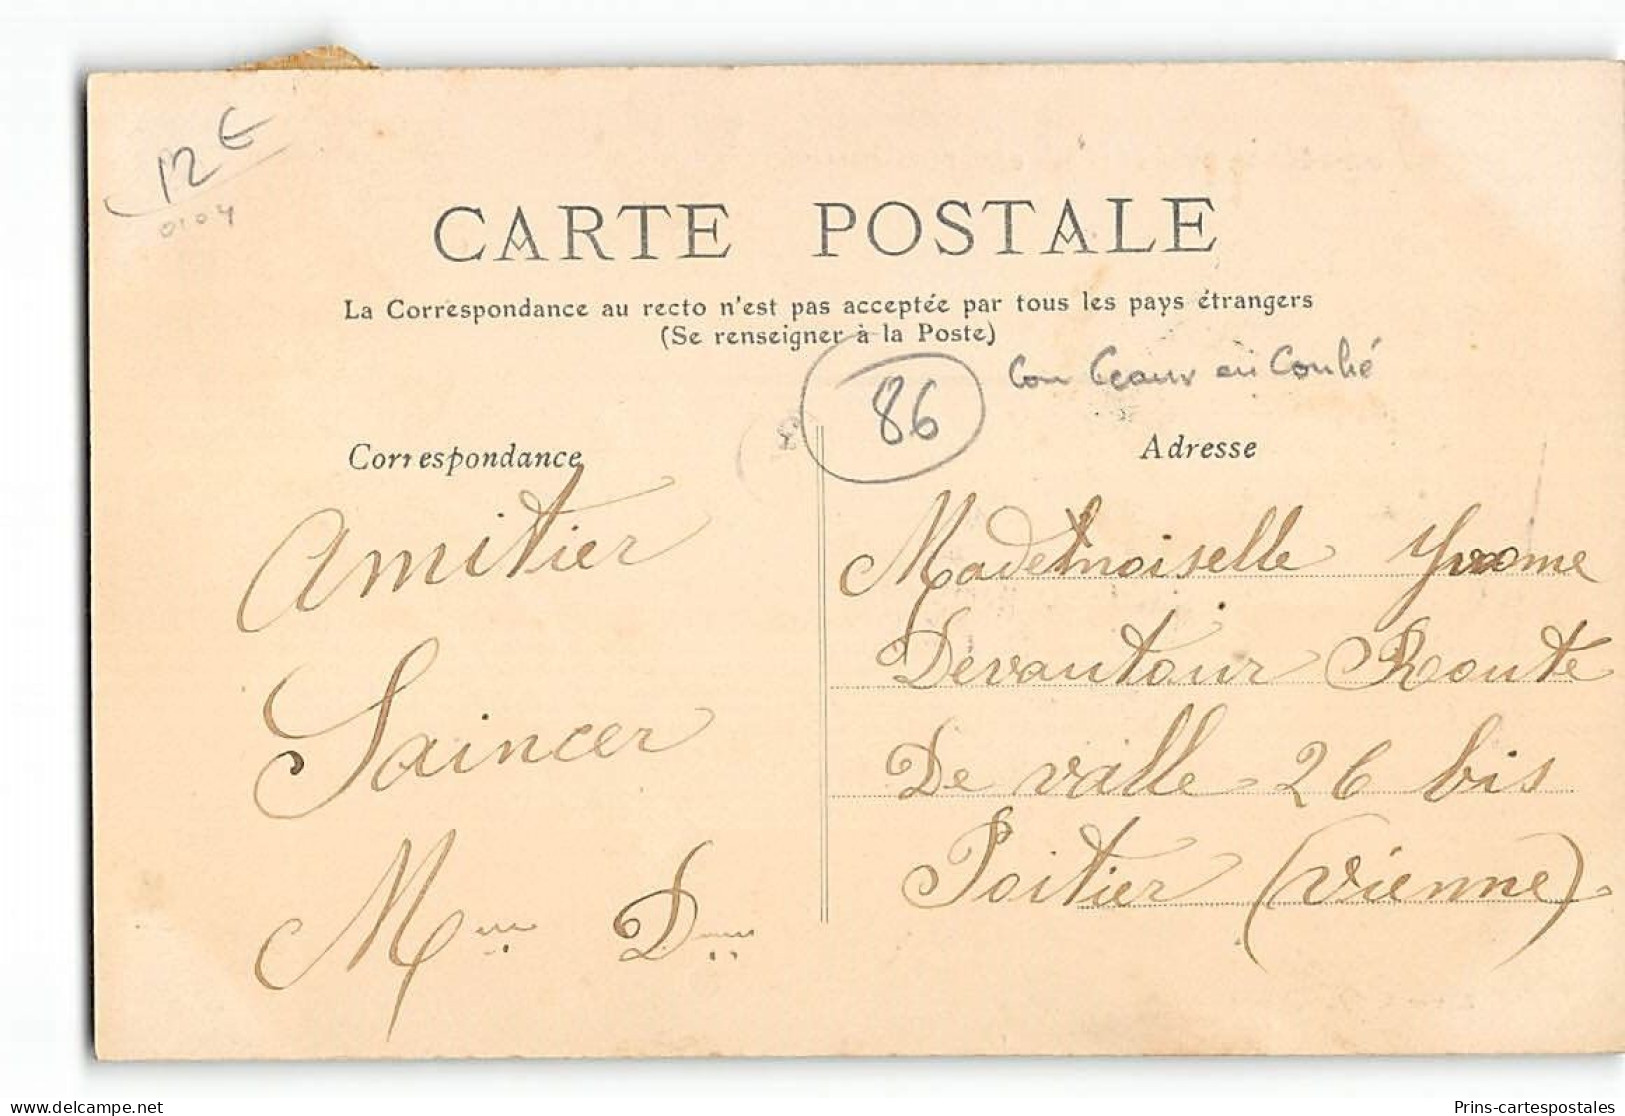 12 €
0104
CARTE POSTALE
La Correspondance au recto n'est pas acceptée par tous les pays étrangers
(Se renseigner à la Poste)
86
Ceaux en Couhé
Correspondance
Adresse
Amitier
Saincer
M D
Mademoiselle Yvonne
Devantour Route
De valle 26 bis
Poitier (Vienne)
Prins-cartespostales